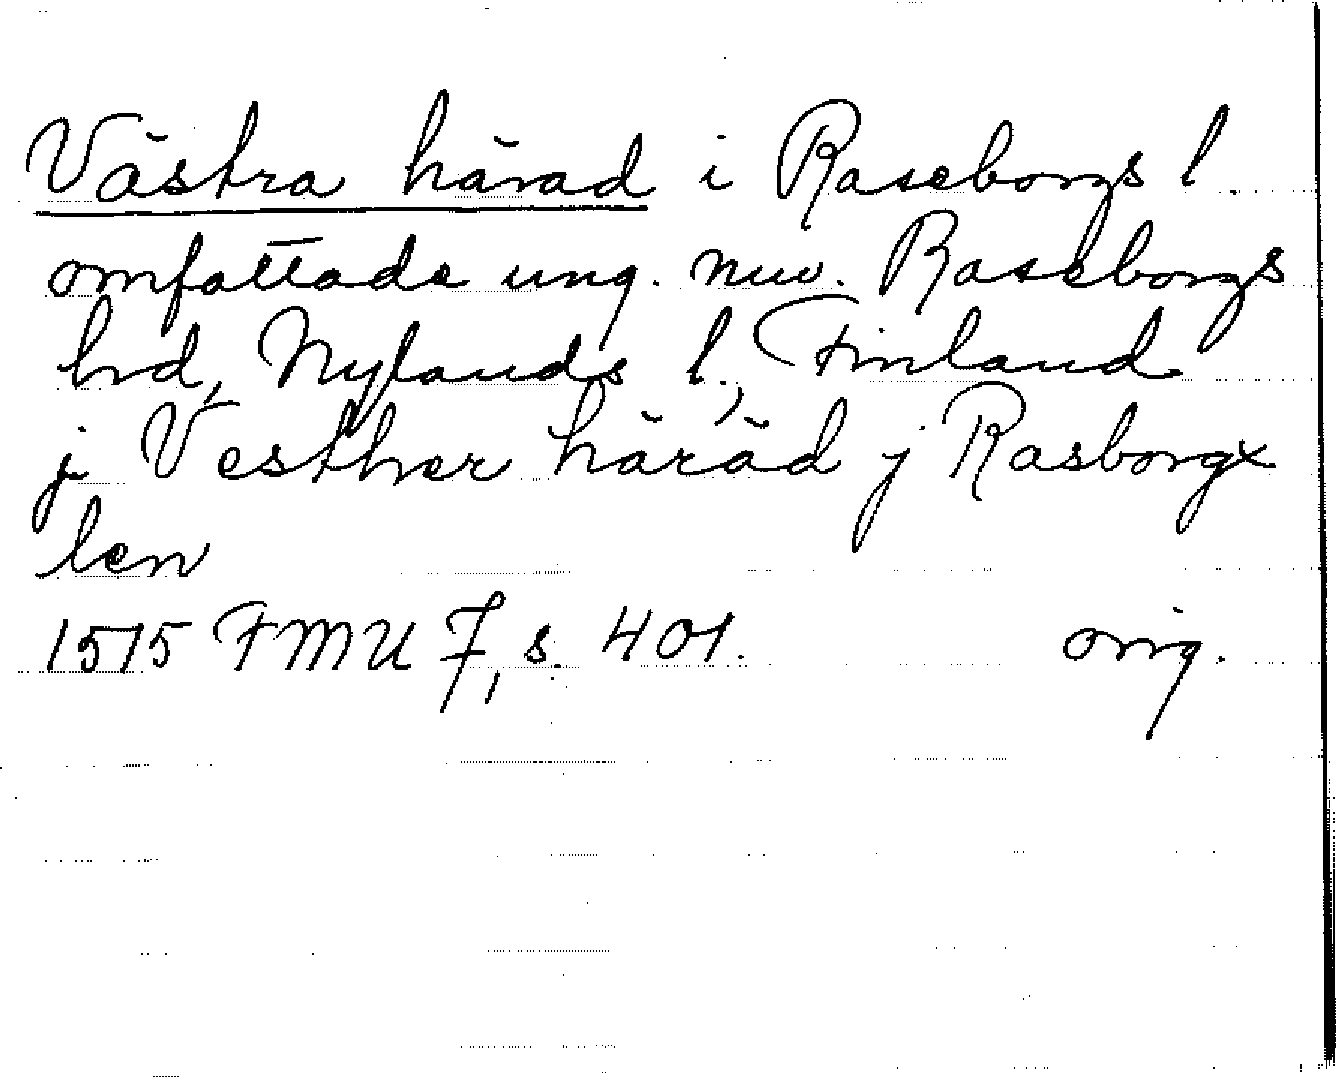 Västra härad i Raseborgs l.
omfattade ung. nuv. Raseborgs
hrd, Nylands l., Finland
j Vesther häräd j Rasborgx
len
1515 FMU 7, s. 401. orig.